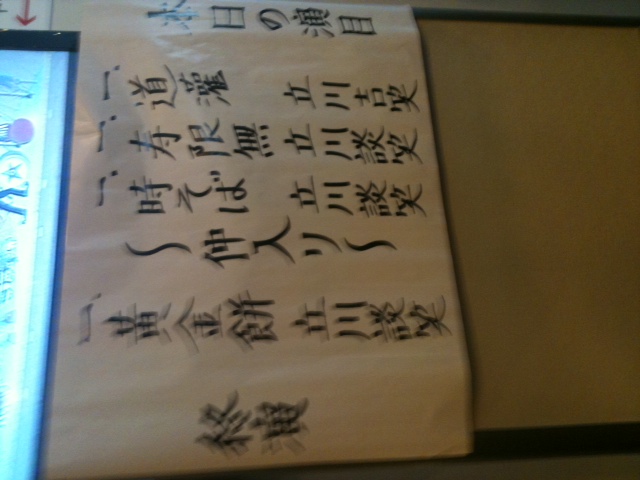 本日の演目
一、道灌 立川吉笑
一、寿限無 立川談笑
一、時そば 立川談笑
〜仲入り〜
一、黄金餅 立川談笑
終演